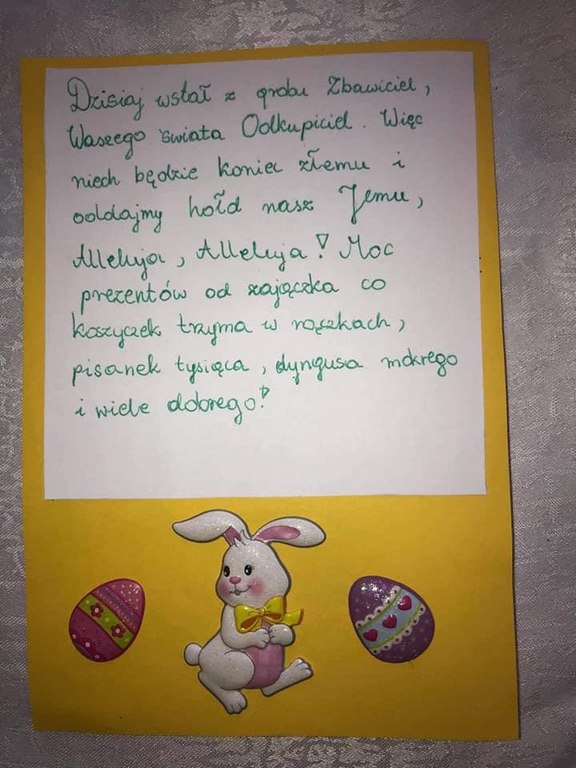 Dzisiaj wstał z grobu Zbawiciel,
Waszego świata Odkupiciel. Więc
niech będzie koniec złemu i
oddajmy hołd nasz Jemu,
Alleluja, Alleluja! Moc
prezentów od zajączka co
koszyczek trzyma w rączkach,
pisanek tysiąca, dyngusa mokrego
i wiele dobrego!